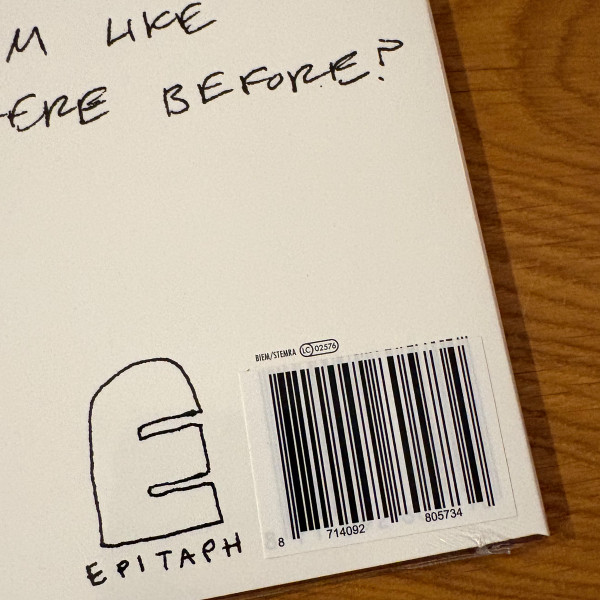 M LIKE
ERE BEFORE?
BIEM/STEMRA LC 02576
EPITAPH
8 714092 805734